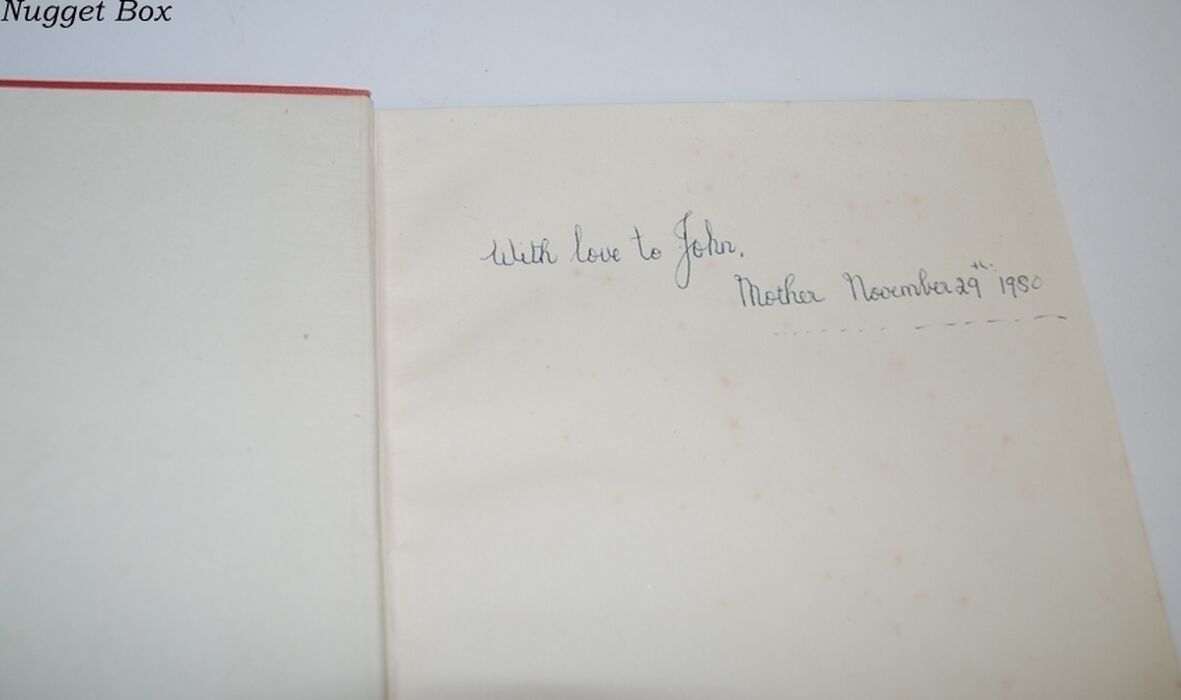 Nugget Box
With love to John.
Mother November 29th. 1950